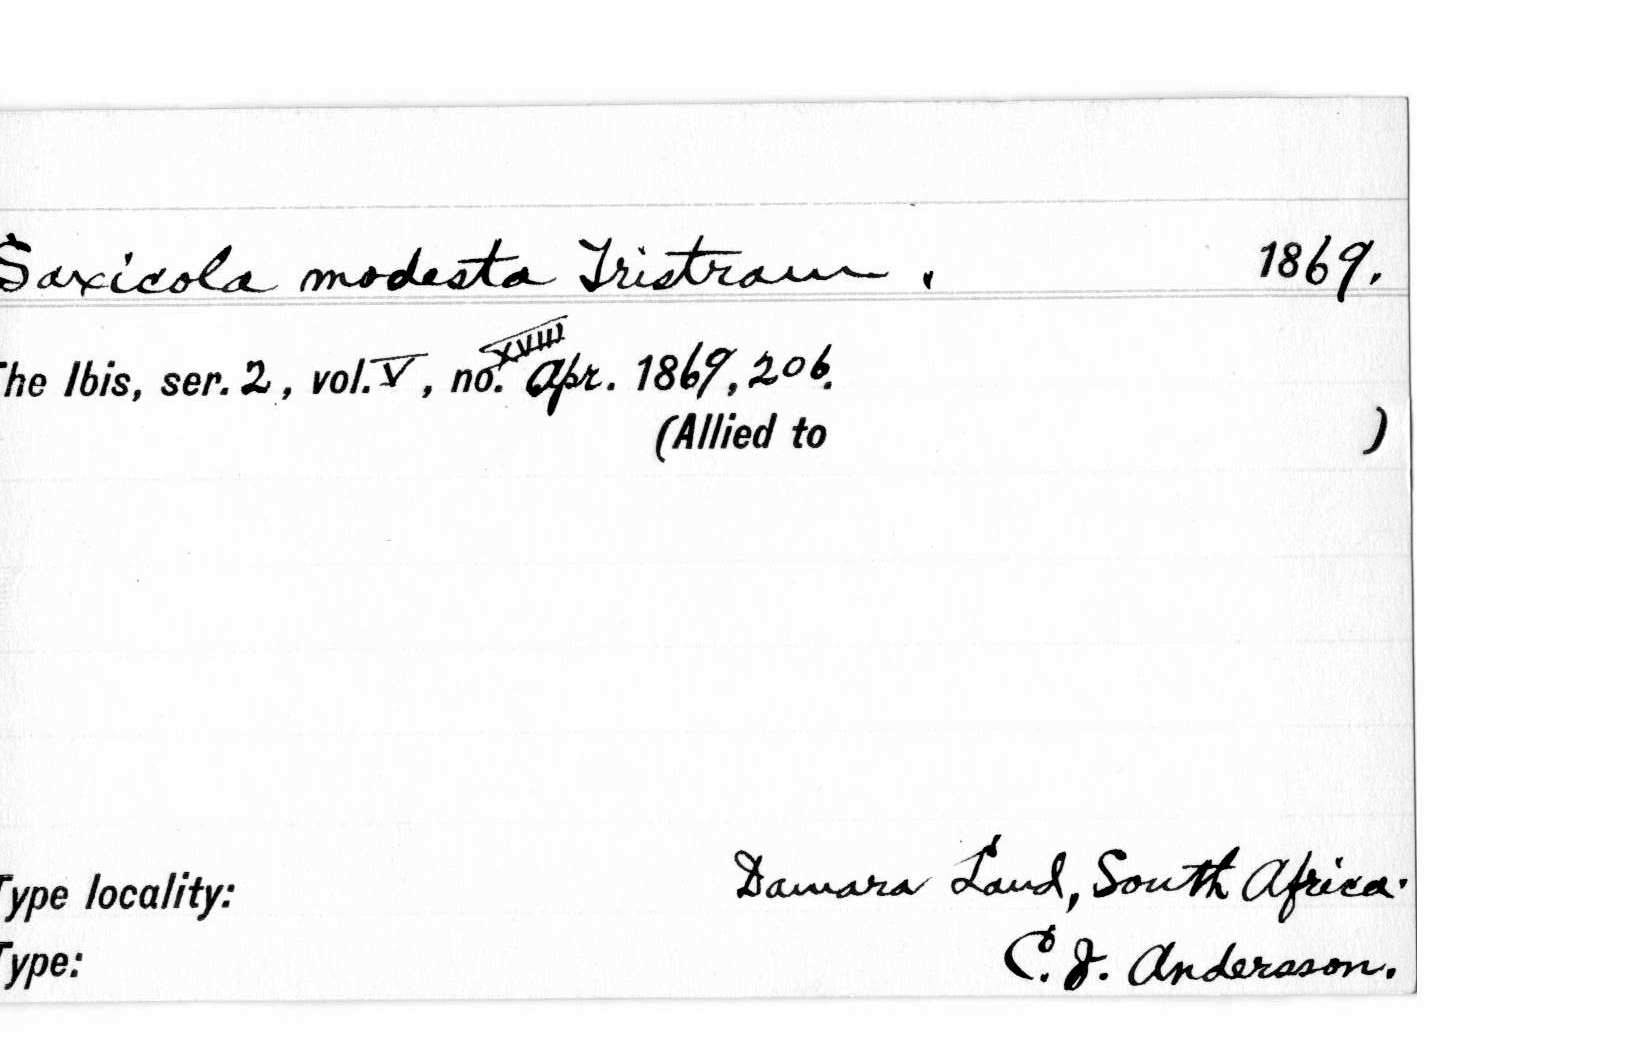 Saxicola modesta Tristram. 1869.
The Ibis, ser. 2, vol. V, no. XVIII Apr. 1869, 206.
(Allied to )
Type locality: Damara Land, South Africa.
Type: C. J. Andersson.